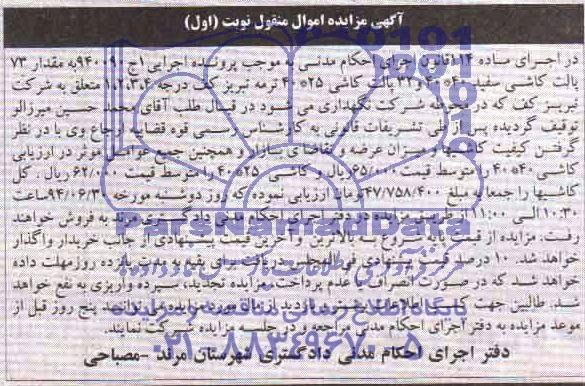 آگهی مزایده اموال منقول نوبت (اول)
در اجرای ماده ۱۱۴ قانون اجرای احکام مدنی به موجب پرونده اجرایی ۱ج۹۴۰۰۹۰ به مقدار ۷۳
پالت کاشی سفید ۴۰*۴۰ و ۳۲ پالت کاشی ۲۵*۴۰ ترمه تبریز کف درجه ۱،۲،۳،۴ متعلق به شرکت
تبریز کف که در محوطه شرکت نگهداری می شود در قبال طلب آقای محمد حسین میرزالو
توقیف گردیده پس از طی تشریفات قانونی به کارشناس رسمی قوه قضاییه ارجاع وی با در نظر
گرفتن کیفیت کاشیها و میزان عرضه و تقاضای بازار و همچنین جمیع عوامل موثر در ارزیابی
کاشی ۴۰*۴۰ را متوسط قیمت ۶۵/۰۰۰ ریال و کاشی ۲۵*۴۰ را متوسط قیمت ۶۲/۰۰۰ ریال . کل
کاشیها را جمعا به مبلغ ۴۷/۷۵۸/۴۰۰ تومان ارزیابی نموده که روز دوشنبه مورخه ۹۴/۰۶/۳۰ ساعت
۱۰:۳۰ الی ۱۱:۰۰ از طریق مزایده در دفتر اجرای احکام مدنی دادگستری مرند به فروش خواهند
رفت. مزایده از قیمت پایه شروع به بالاترین و آخرین قیمت پیشنهادی از جانب خریدار واگذار
خواهد شد. ۱۰ درصد قیمت پیشنهادی فی المجلس دریافت برای بقیه به مدت پانزده روز مهلت داده
خواهد شد که در صورت انصراف یا عدم پرداخت مزایده تجدید، سپرده واریزی به نفع خواهد
شد. طالبین جهت کسب اطلاعات بیشتر و بازدید از مال مورد مزایده می توانند پنج روز قبل از
موعد مزایده به دفتر اجرای احکام مدنی مراجعه و در جلسه مزایده شرکت نمایند.
دفتر اجرای احکام مدنی دادگستری شهرستان مرند -مصباحی
ParsNamadData
پایگاه اطلاع رسانی مناقصه و مزایده
۰۲۱-۸۸۳۴۹۶۷۰-۵